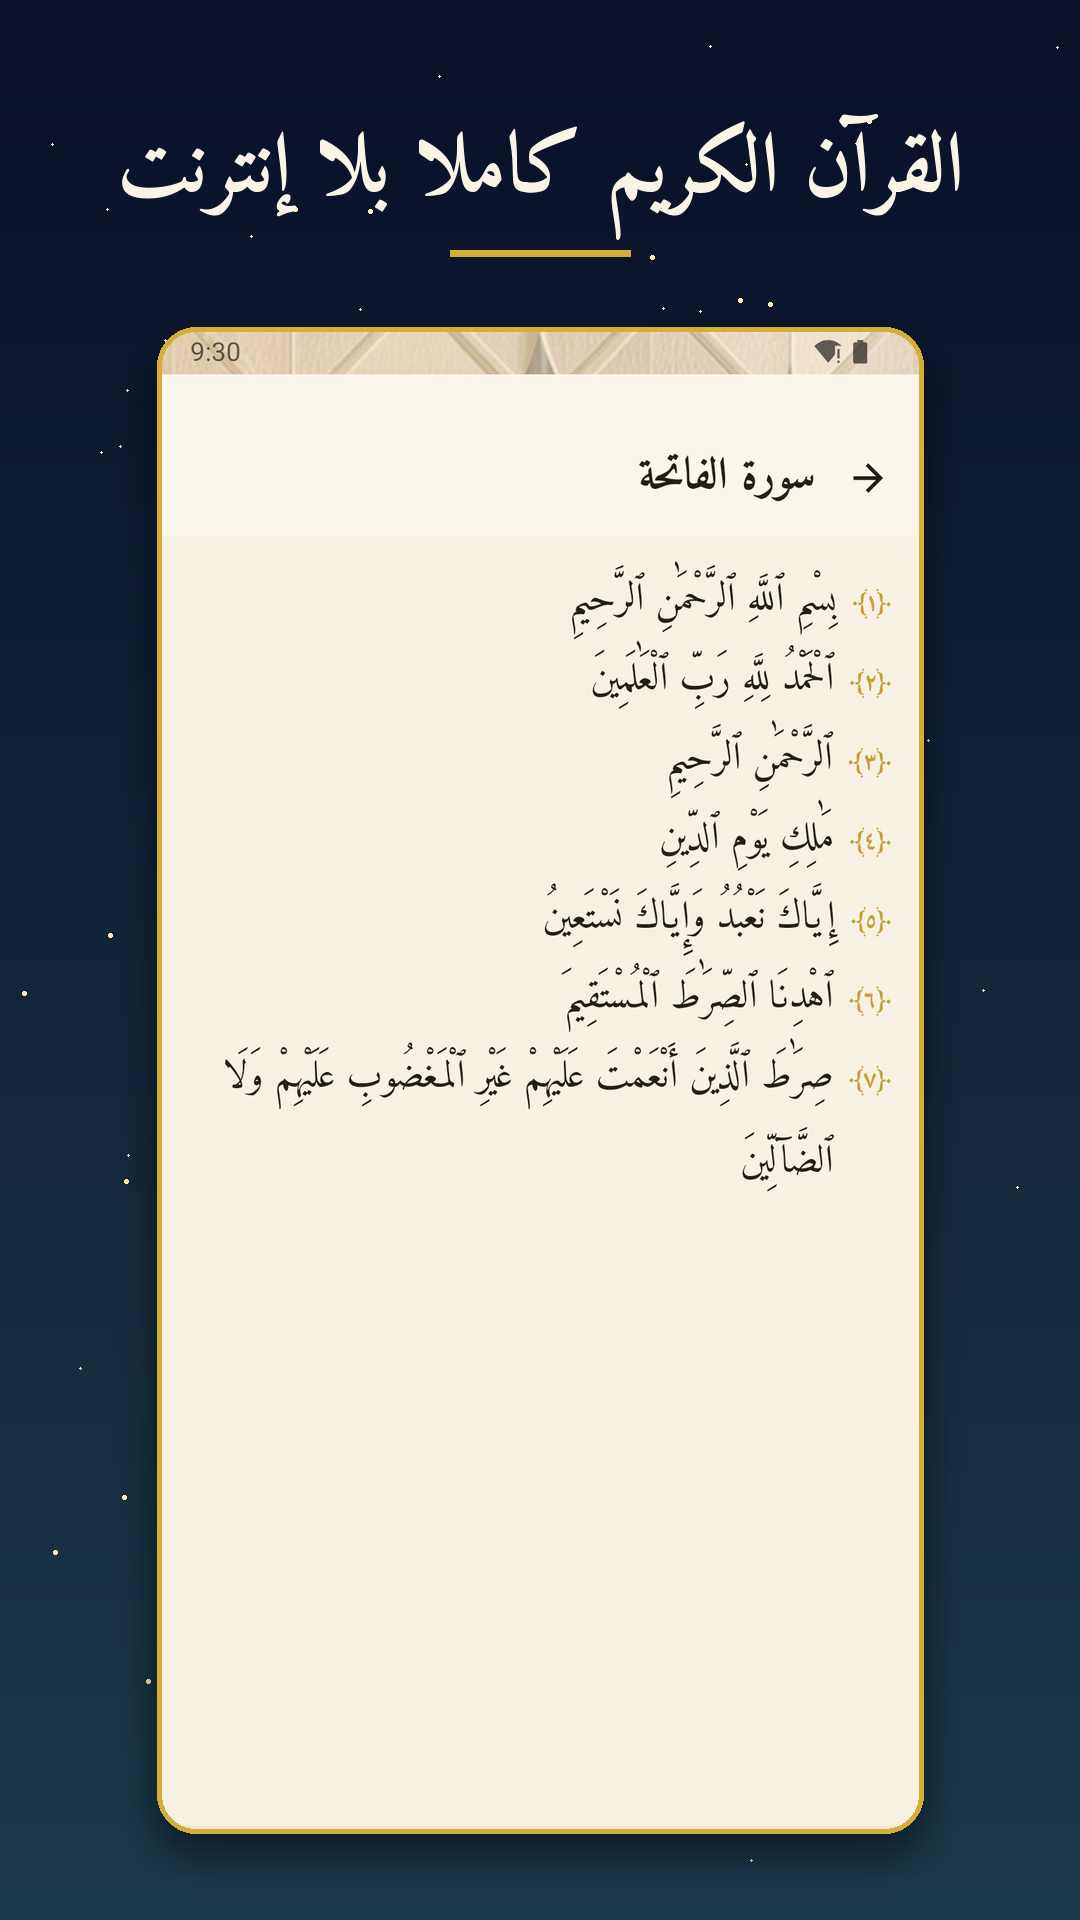 القرآن الكريم كاملا بلا إنترنت
9:30
سورة الفاتحة
﴿١﴾ بِسْمِ ٱللَّهِ ٱلرَّحْمَٰنِ ٱلرَّحِيمِ
﴿٢﴾ ٱلْحَمْدُ لِلَّهِ رَبِّ ٱلْعَٰلَمِينَ
﴿٣﴾ ٱلرَّحْمَٰنِ ٱلرَّحِيمِ
﴿٤﴾ مَٰلِكِ يَوْمِ ٱلدِّينِ
﴿٥﴾ إِيَّاكَ نَعْبُدُ وَإِيَّاكَ نَسْتَعِينُ
﴿٦﴾ ٱهْدِنَا ٱلصِّرَٰطَ ٱلْمُسْتَقِيمَ
﴿٧﴾ صِرَٰطَ ٱلَّذِينَ أَنْعَمْتَ عَلَيْهِمْ غَيْرِ ٱلْمَغْضُوبِ عَلَيْهِمْ وَلَا
ٱلضَّآلِّينَ